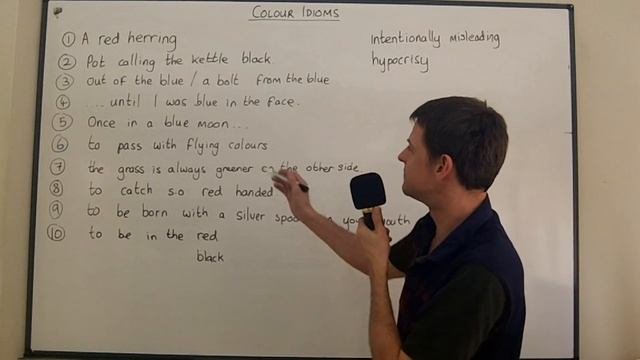 COLOUR IDIOMS
① A red herring
Intentionally misleading
② Pot calling the kettle black.
hypocrisy
③ Out of the blue / a bolt from the blue
④ .... until I was blue in the face.
⑤ Once in a blue moon...
⑥ to pass with flying colours
⑦ the grass is always greener the other side.
⑧ to catch s.o red handed
⑨ to be born with a silver
⑩ to be in the red
black